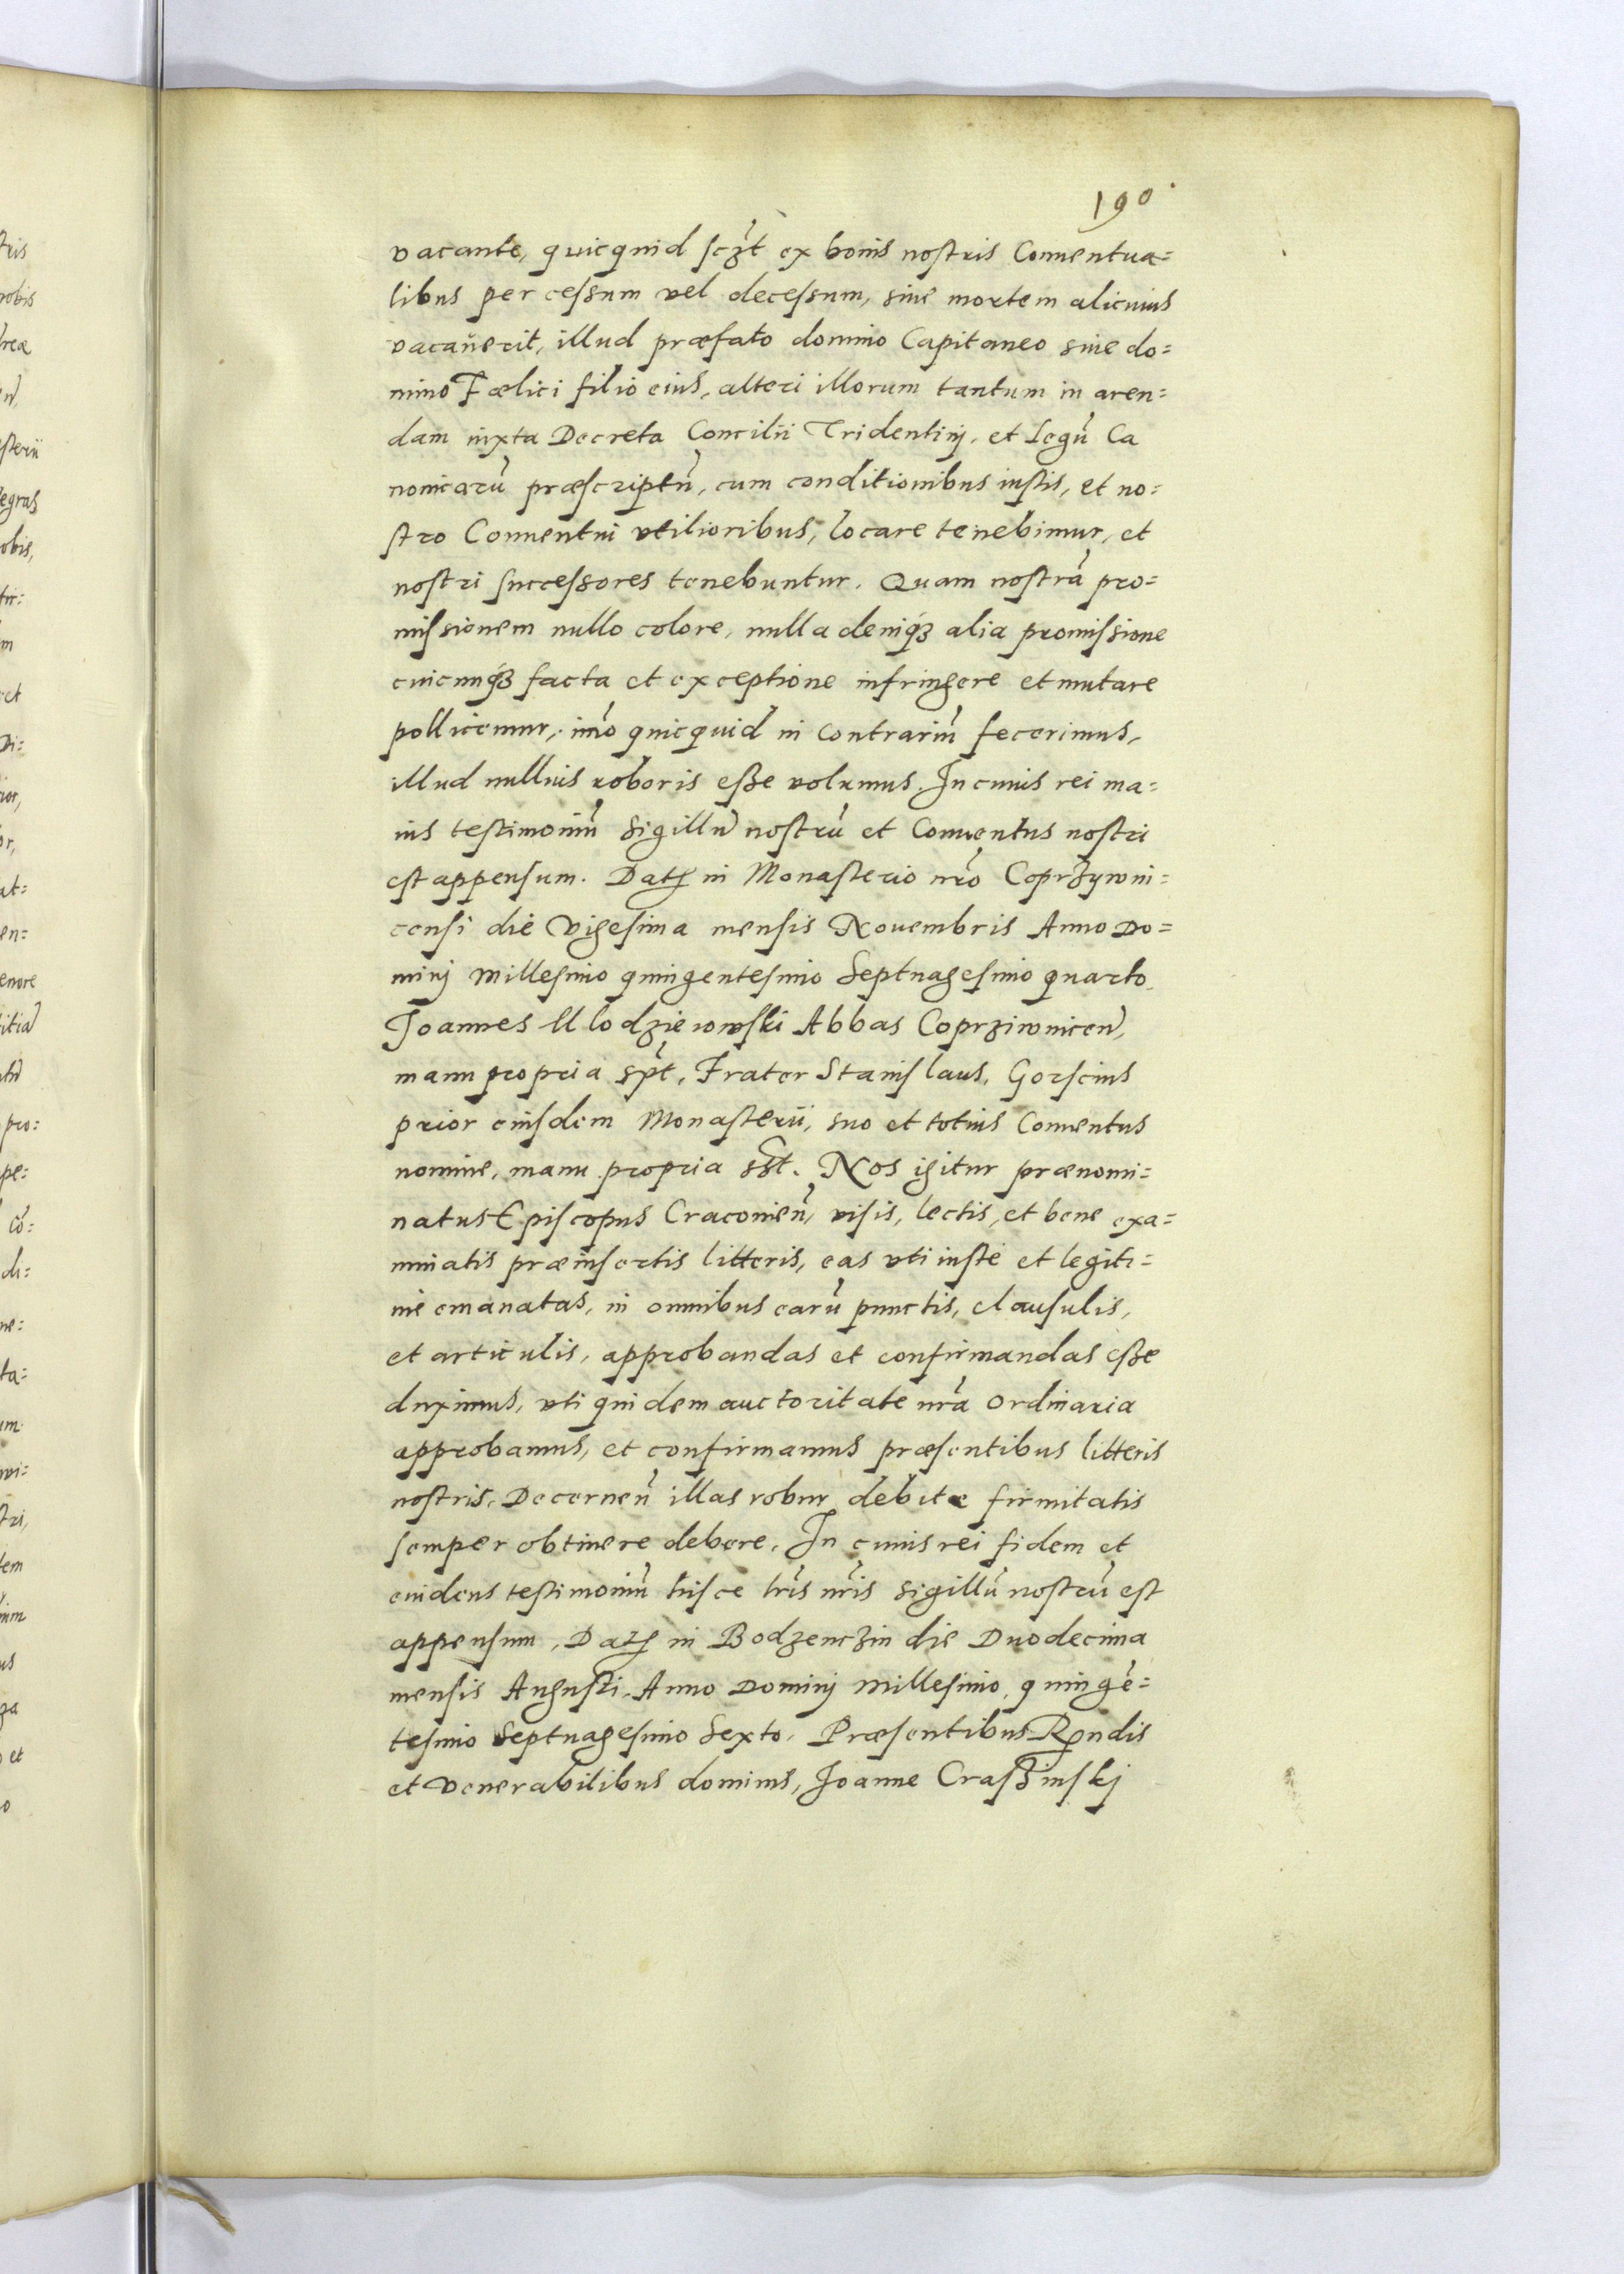 190
vacante, quicquid sczt ex bonis nostris Conuentua=
libus per cessum vel decessum, siue mortem alicuius
vacauerit, illud præfato domino Capitaneo siue do=
mino Fælici filio eius, alteri illorum tantum in aren=
dam iuxta Decreta Concilii Tridentinj, et Legū Ca
nonicarū præscriptū, cum conditionibus iustis, et no=
stro Conuentui vtilioribus, locare tenebimur, et
nostri successores tenebuntur. Quam nostrā pro=
missionem nullo colore, nulla deniqȝ alia promissione
cuicunqȝ facta et exceptione infringere et mutare
pollicemur, imō quicquid in contrariū fecerimus,
illud nullius roboris esse volumus. In cuius rei ma=
ius testimoniū Sigillū nostrū et Conuentus nostri
est appensum. Datꝭ in Monasterio nrō Coprzywni=
censi die Vigesima mensis Nouembris Anno Do=
minj Millesimo quingentesimo Septuagesimo quarto.
Joannes Wlodziewowski Abbas Coprziwnicen̄,
manu propria spt. Frater Stanislaus, Gorscius
prior eiusdem Monasterii, suo et totius Conuentus
nomine, manu propria sst. Nos igitur prænomi=
natus Episcopus Cracouien̄, visis, lectis, et bene exa=
minatis præinsertis litteris, eas vti iustè et legiti=
mè emanatas, in omnibus earū punctis, clausulis,
et articulis, approbandas et confirmandas esse
duximus, vti quidem auctoritate nrā ordinaria
approbamus, et confirmamus præsentibus litteris
nostris. Decernen̄ illas robur debitæ firmitatis
semper obtinere debere. In cuius rei fidem et
euidens testimoniū hisce lrīs nrīs Sigillū nostrū est
appensum, Datꝭ in Bodzenczin die Duodecima
mensis Augusti, Anno Dominj Millesimo, quingē=
tesimo Septuagesimo Sexto. Præsentibus Rndis
et Venerabilibus dominis, Joanne Crassinskj